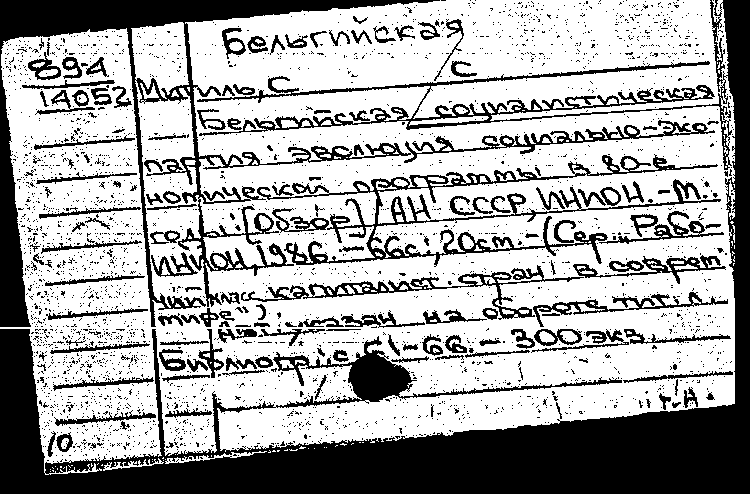 Бельгийская
894
14052
Митиль, С С
Бельгийская социалистическая
партия: эволюция социально-эко-
номической программы в 80-е
годы: [Обзор] / АН СССР, ИНИОН. -М.:
ИНИОН, 1986. - 66с.; 20см. - (Сер.: Рабо-
чий класс капиталист. стран в соврем.
мире").
Авт. указан на обороте тит. л.
Библиогр.: с. 61-66. - 300 экз.
10